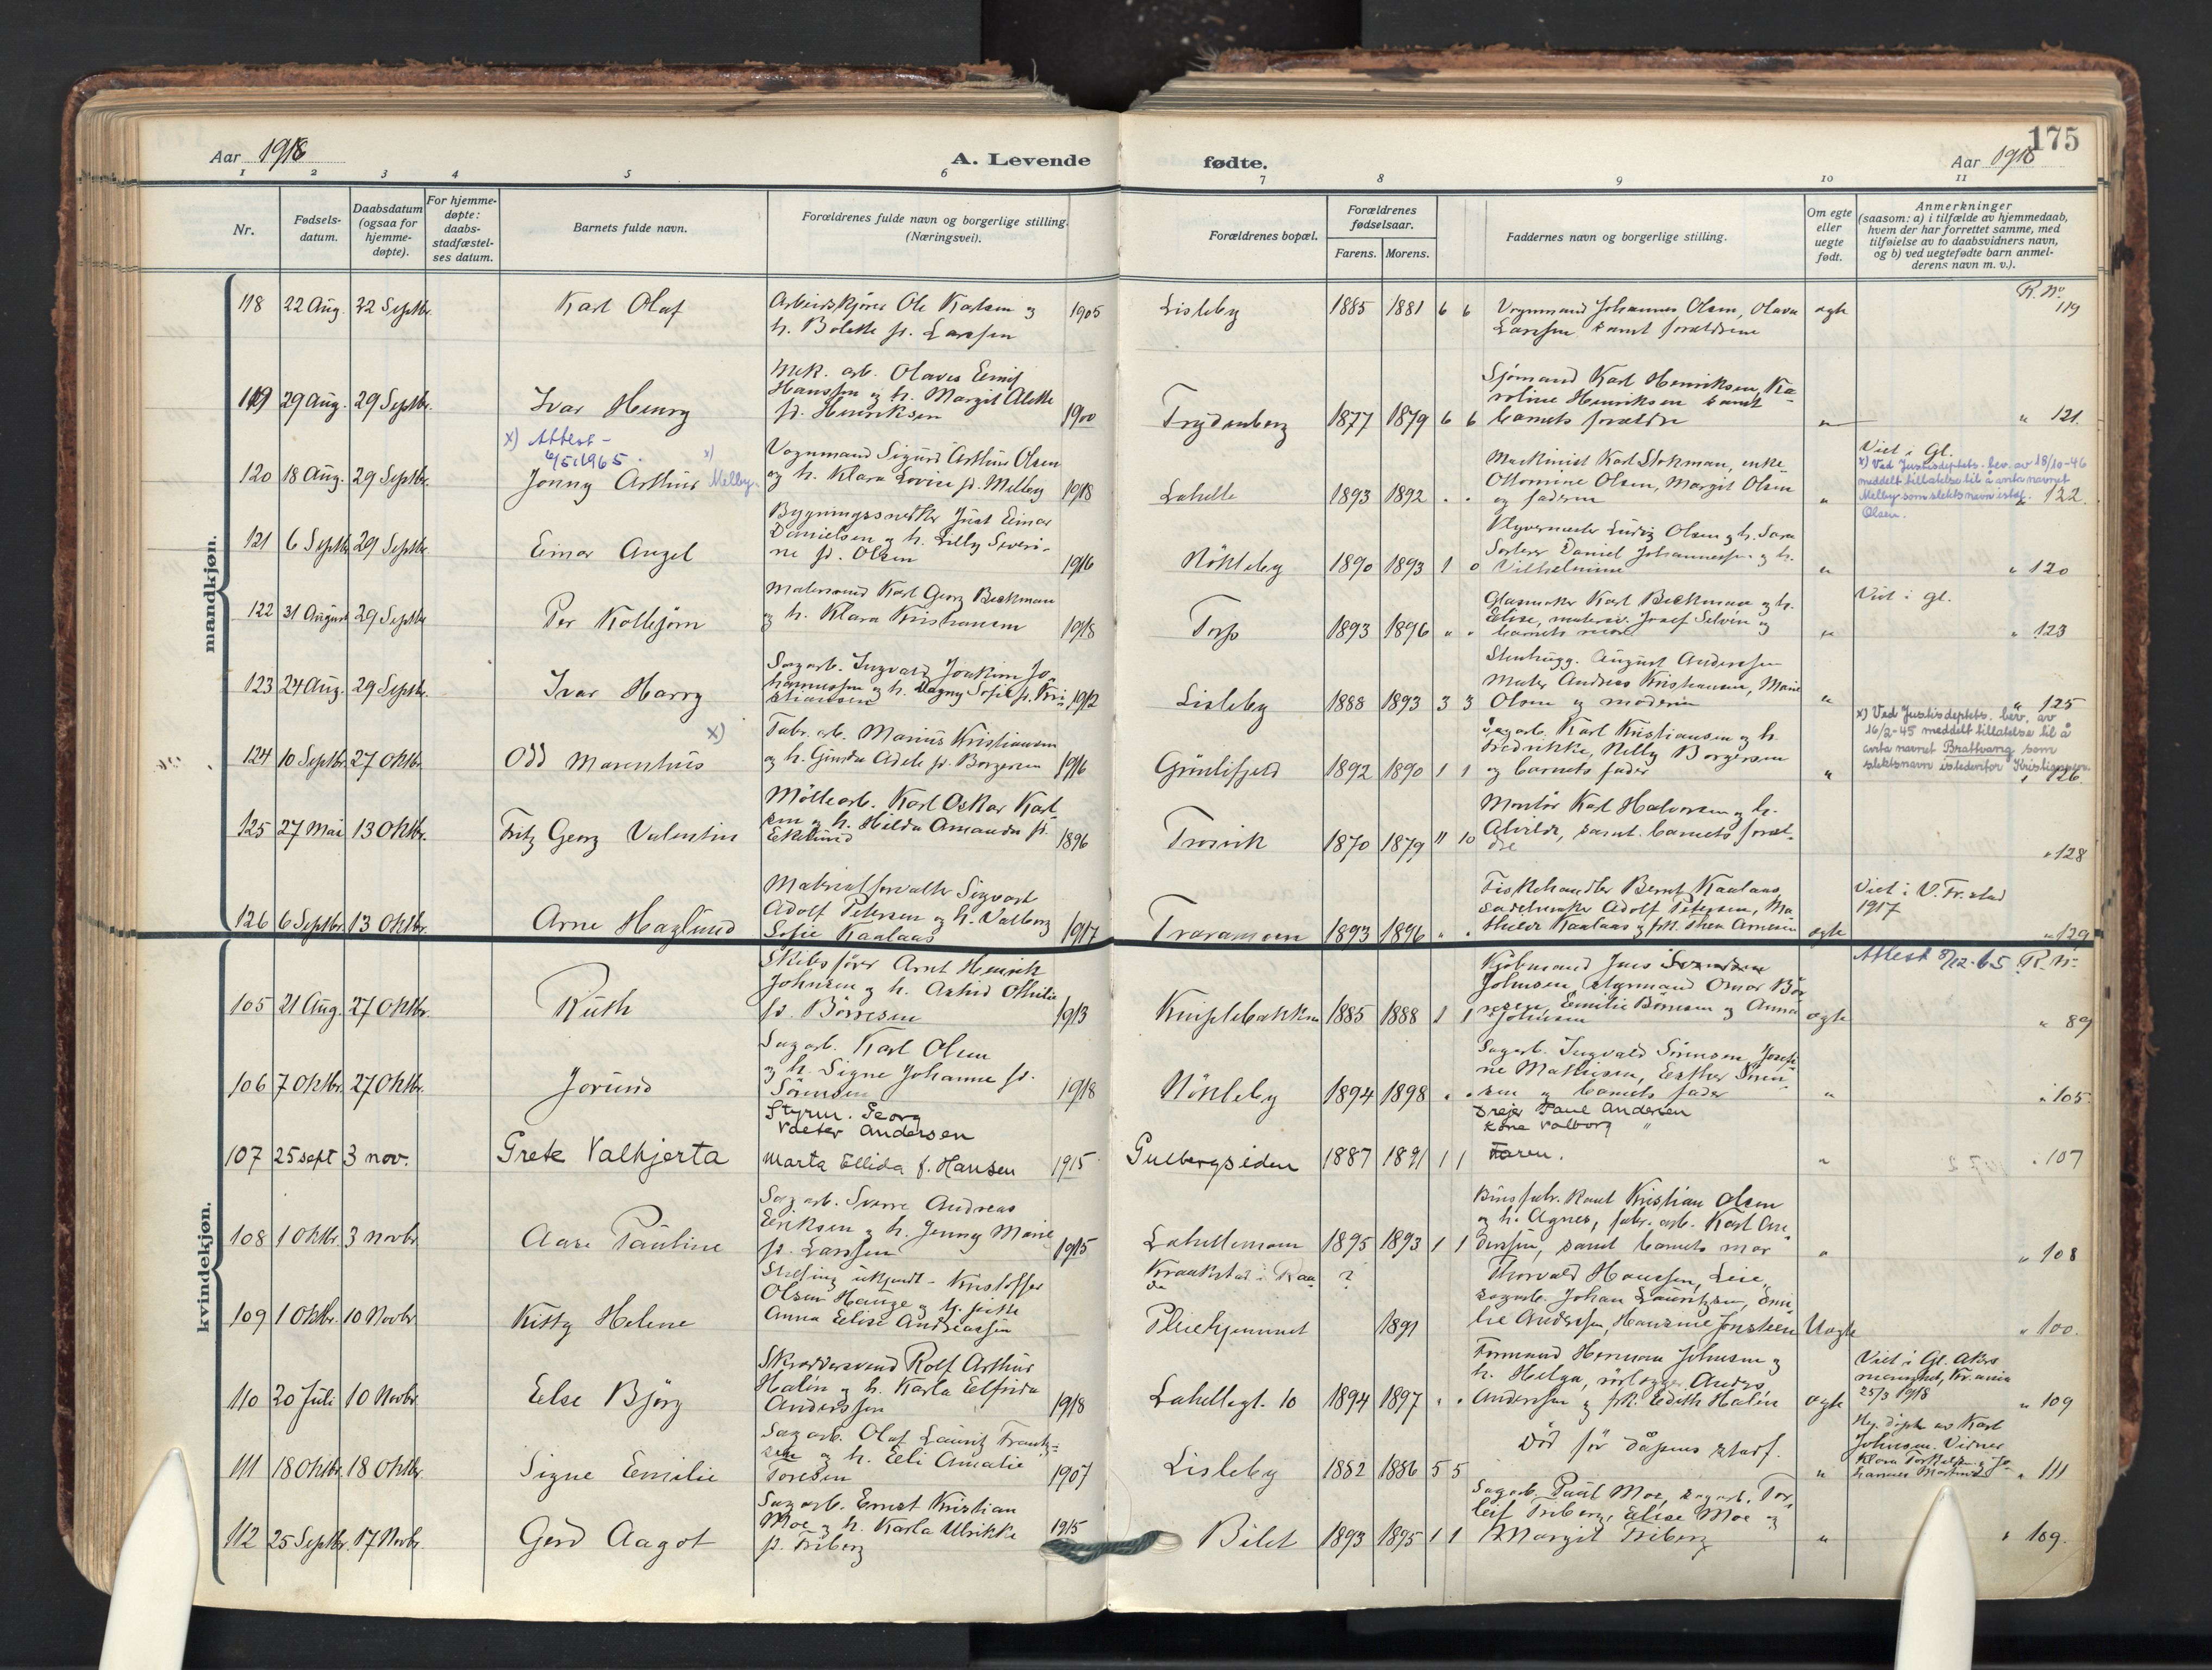 Aar 1918
A. Levende
fødte.
Aar 1918
175
1 2 3 4 5 6 7 8 9 10 11
Nr.
Fødsels-
datum.
Daabsdatum
(ogsaa for
hjemme-
døpte).
For hjemme-
døpte:
daabs-
stadfæstel-
ses datum.
Barnets fulde navn.
Forældrenes fulde navn og borgerlige stilling.
(Næringsvei).
Forældrenes bopæl.
Forældrenes
fødselsaar.
Farens. Morens.
Faddernes navn og borgerlige stilling.
Om egte
eller
uegte
født.
Anmerkninger
(saasom: a) i tilfælde av hjemmedaab,
hvem der har forrettet samme, med
tilføielse av to daabsvidners navn,
og b) ved uegtefødte barn anmel-
derens navn m. v.).
mandkjøn.
118 22 Aug. 22 Septbr. Karl Olaf
Arbeidskjörer Ole Karlsen og
h. Bolette f. Larssen 1905
Lisleby 1885 1881 6 6
Vognmand Johannes Olsen, Olava
Larssen samt forældrene
egte
R. No.
119
119 29 Aug. 29 Septbr. Ivar Henry
Mek. arb. Olaves Emil
Hanssen og h. Margit Alette
f. Henriksen 1900
Trydenberg 1877 1879 6 6
Sjömand Karl Henriksen, Ka-
roline Henriksen samt
barnets forældre
" 121.
x) Attest -
6/5 1965.
120 18 Aug. 29 Septbr. Jonny Arthur x) Melby.
Vognmand Sigurd Arthur Olsen
og h. Klara Lovise f. Melby 1918
Lahelle 1893 1892 " "
Maskinist Karl Stokman, enke
Ottomine Olsen, Margit Olsen
og faderen
"
Viet i Gl.
x) Ved Justisdeptets. bev. av 18/10-46
meddelt tillatelse til å anta navnet
Melby som slektsnavn istf.
Olsen.
122.
121 6 Septbr. 29 Septbr. Einar Angel
Bygningssnekker Just Einar
Danielsen og h. Lilly Severi-
ne f. Olsen 1916
Nökleby 1890 1893 1 0
Ludvig Olsen og h. Sara
Sorterer Daniel Johannessen og h.
Vilhelmine
"
" 120
122 31 August 29 Septbr Per Kolbjörn
Malersvend Karl Georg Beckman
og h. Klara Kristiansen 1918
Torp 1893 1896 " "
Glasmester Karl Beckman og h.
Elise, malersv. Josef Selvin og
barnets mor
"
Viet i gl.
" 123
123 24 Aug. 29 Septbr. Ivar Harry
Sagarb. Ingvald Joakim Jo-
hannessen og h. Dagny Sofie f. Kri-
stiansen 1912
Lisleby 1888 1893 3 3
Stenhugg. August Anderssen
Maler Andreas Kristiansen, Marie
Olsen og moderen
"
" 125
x)
124 10 Septbr. 27 Oktbr. Odd Marenthius
Fabr. arb. Marius Kristiansen
og h. Gunda Adele f. Borgersen 1916
Grönlifjeld 1892 1890 1 1
Sagarb. Karl Kristiansen og h.
Fredrikke, Nelly Borgersen
og barnets fader
"
x) Ved Justisdeptets. bev. av
16/2-45 meddelt tillatelse til å
anta navnet Brattvang som
slektsnavn istedenfor Kristiansen.
" 126.
125 27 Mai 13 Oktbr. Fritz Georg Valentin
Möllearb. Karl Oskar Karl-
sen og h. Hilda Amanda f.
Ekelund 1896
Trosvik 1870 1879 11 10
Montör Karl Halvorsen og h.
Alvilde, samt barnets foræl-
dre
" 128
126 6 Septbr. 13 Oktbr. Arne Haglund
Materialforvalter Sigvart
Adolf Petersen og h. Valborg
Sofie Kaalaas 1917
Traramoen 1893 1896 " "
Fiskehandler Bernt Kaalaas,
sadelmaker Adolf Petersen, Ma-
thilde Kaalaas og frk. Thea Arnesen
egte
Viet i V. Fr.stad
1917
" 129
kvindekjøn.
105 21 Aug. 27 Oktbr. Ruth
Skibsförer Arnt Henrik
Johnsen og h. Astrid Othilie
f. Börresen 1913
Kniplebakken 1885 1888 1 1
Kjöbmand Jens
Johnsen, styrmand Omar Bör-
resen, Emilie Börresen og Anna
Johnsen
egte
Attest 8/12-65. R. Nr.
" 89
106 7 Oktbr. 27 Oktbr. Jorund
Sagarb. Karl Olsen
og h. Signe Johanne f.
Sörensen 1918
Nökleby 1894 1898 " "
Sagarb. Ingvald Sörensen, Josefi-
ne Mathisen, Esther Sören-
sen og barnets fader
"
" 105.
107 25 sept 3 nov. Grete Valhjerta
Styrm. Georg
Valter Andersen
Marta Ellida f. Hansen 1915
Gulbergsiden 1887 1891 1 1
Drejer Paul Andersen
Kone Valborg "
Faren.
"
" 107
108 1 Oktbr. 3 Novbr Aase Pauline
Sagarb. Sverre Andreas
Eriksen og h. Jenny Marie
f. Larssen 1915
Lahellemoen 1895 1893 1 1
Kristian Olsen
og h. Agnes, fabr. arb. Karl An-
derssen, samt barnets mor
"
" 108
109 1 Oktbr. 10 Novbr Kitty Helene
Stilling ukjendt - Kristoffer
Olsen Hauge og tj. pike
Anna Elise Andreassen
Kraakstad i Raa-
de ?
Pleiehjemmet 1891
Thorvald Hanssen, Leie,
sagarb. Johan Lauritzen, Emi-
lie Anderssen, Hansine Jonsteen
Uegte
" 100.
110 20 Juli 10 Novbr Else Björg
Skræddersvend Rolf Arthur
Halén og h. Karla Elfrida
Anderssen 1918
Lahellegt. 10 1894 1897 " "
Formand Herman Johnsen og
h. Helga, rörlegger Anders
Anderssen og frk. Edith Halén
egte
Viet i Gl. Akers
menighet, Kr.ania
25/3 1918
" 109
111 18 Oktbr. 18 Oktbr Signe Emilie
Sagarb. Olaf Lauritz Frantz-
sen og h. Eli Amalie
Toresen 1907
Lisleby 1882 1886 5 5
Död för dåpens stadf.
"
Hj. döpt av Karl
Johnsen. Vidner
Klara Torkelsen og Jo-
hannes Martinsen
" 111
112 25 Septbr. 17 Novbr. Gerd Aagot
Sagarb. Ernst Kristian
Moe og h. Karla Ulrikke
f. Friberg 1915
Bilet 1893 1895 1 1
Sagarb. Paul Moe, sagarb. Tor-
leif Friberg, Elise Moe og
Margit Friberg
"
" 109.